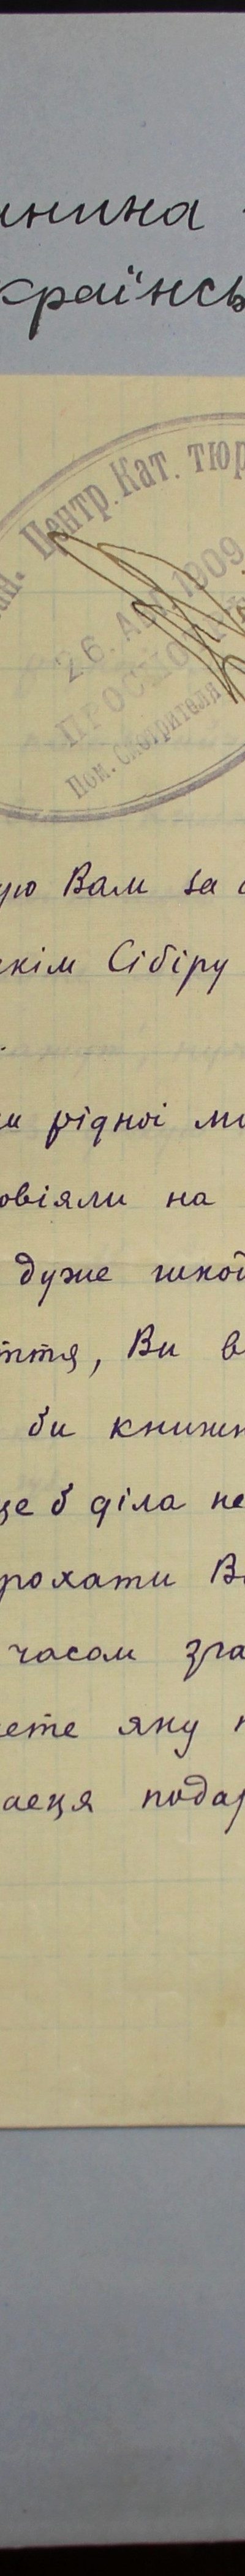 инина
країнсь
Центр. Кат. тюр
26. АПР. 1909
ПРОСМО
Пом. смотрителя
ую Вам за
кім Сібіру
и рідної ми
овіяли на
дуже шкод
ття, Ви в
би книжк
ще б діла не
прохати Ва
часом зга
ете яку п
аеця подар